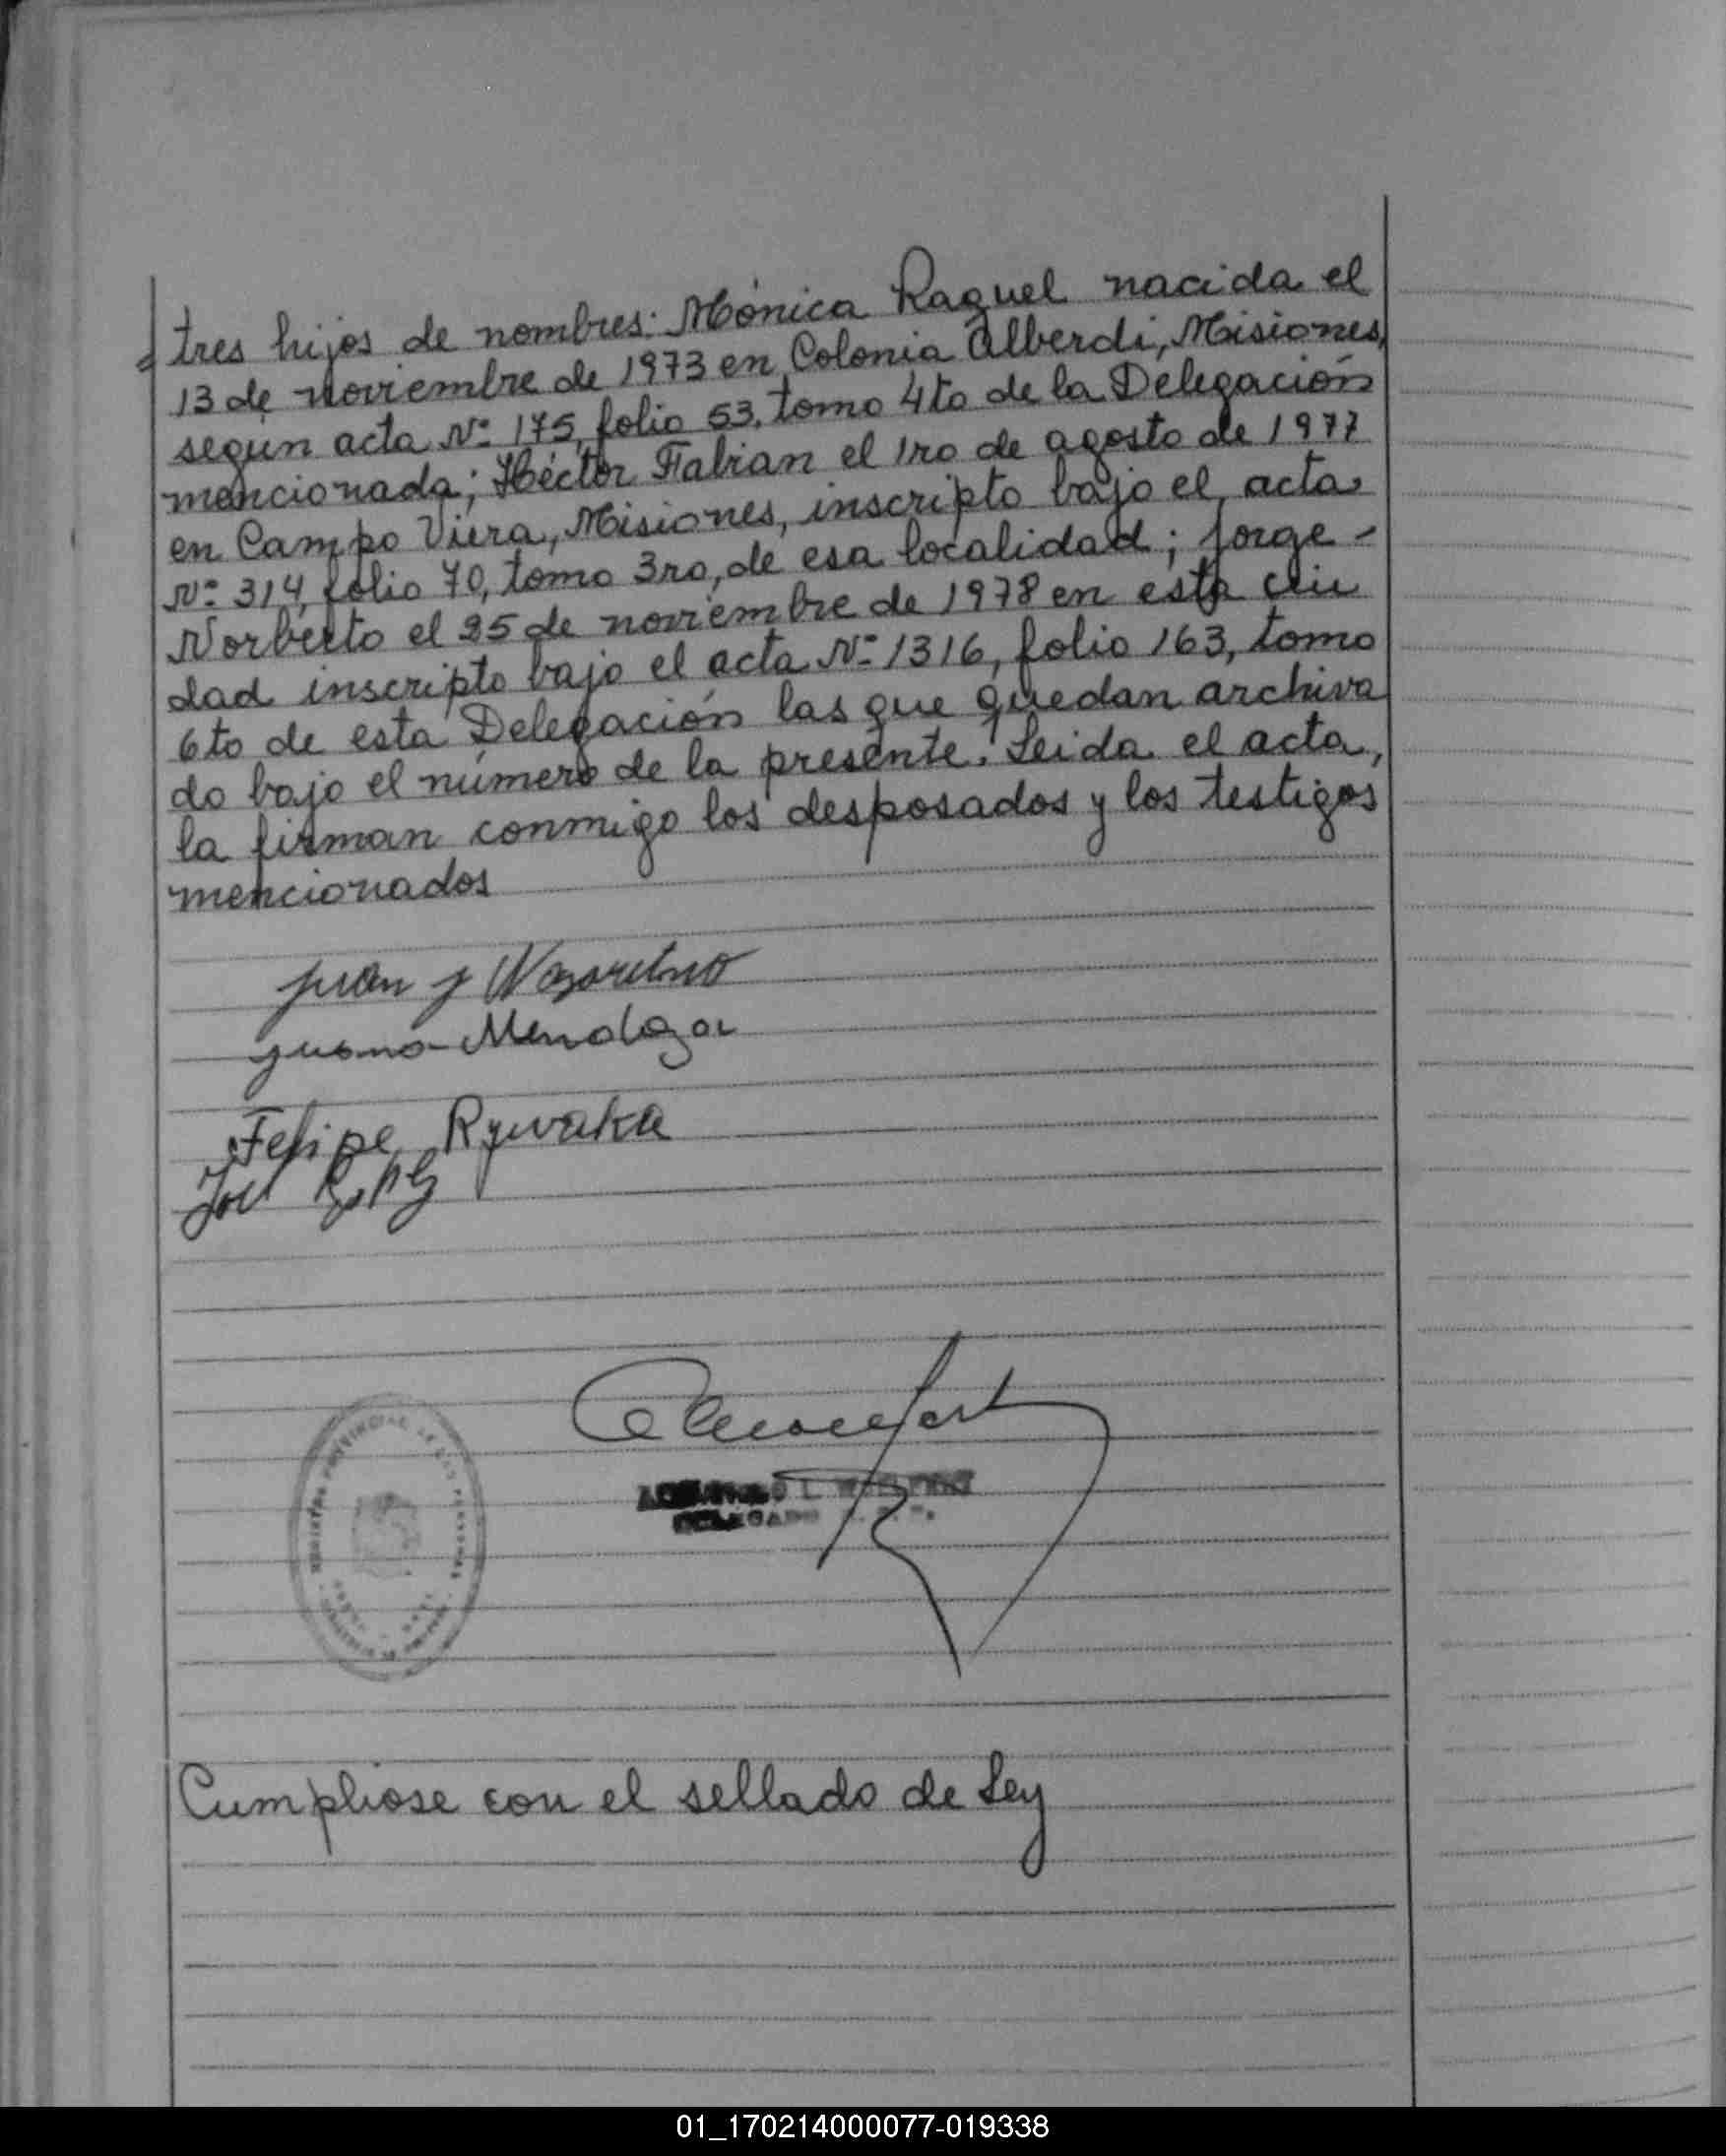 tres hijos de nombres: Mónica Raquel nacida el
13 de noviembre de 1973 en Colonia Alberdi, Misiones,
según acta Nº 175, folio 53, tomo 4to de la Delegación
mencionada; Héctor Fabian el 1ro de agosto de 1977
en Campo Viera, Misiones, inscripto bajo el acta
Nº 314, folio 70, tomo 3ro, de esa localidad; Jorge -
Norberto el 25 de noviembre de 1978 en esta ciu
dad inscripto bajo el acta Nº 1316, folio 163, tomo
6to de esta Delegación las que quedan archiva
do bajo el número de la presente. Leida el acta,
la firman conmigo los desposados y los testigos
mencionados
Juan J Nazareno
Juana Mendoza
Felipe Rywaka
DELEGADO
Cumpliose con el sellado de Ley
01_170214000077-019338